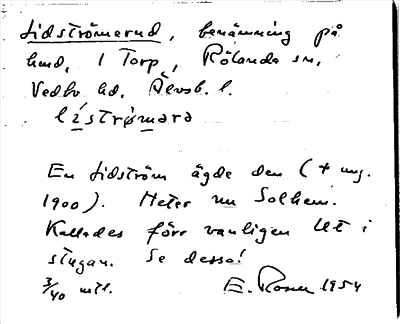 Lidströmerud, benämning på
hmd, i Torp, Rölanda sn,
Vedbo hd. Älvsb. l.
lístrømara
En Lidström ägde den († ung.
1900). Heter nu Solhem.
Kallades förr vanligen Ut i
stugan. Se dessa!
3/40 mtl. E. Rosen 1954